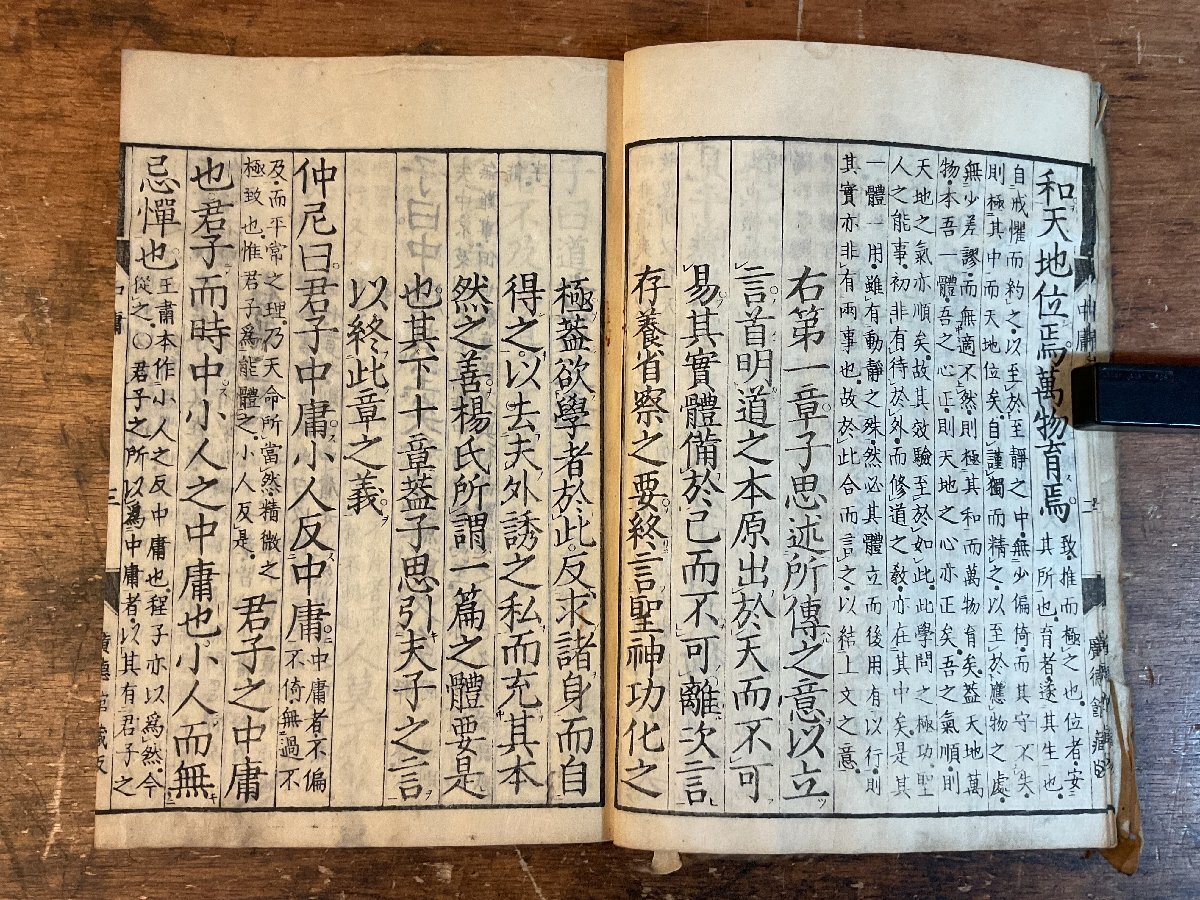 和天地位焉萬物育焉
致推而極之也位者安
其所也育者遂其生也
自戒懼而約之以至於至靜之中無少偏倚而其守不失
則極其中而天地位矣自謹獨而精之以至於應物之處
無少差謬而無適不然則極其和而萬物育矣葢天地萬
物本吾一體吾之心正則天地之心亦正矣吾之氣順則
天地之氣亦順矣故其效驗至於如此此學問之極功聖
人之能事初非有待於外而修道之敎亦在其中矣是其
一體一用雖有動靜之殊然必其體立而後用有以行則
其實亦非有兩事也故於此合而言之以結上文之意
右第一章子思述所傳之意以立
言首明道之本原出於天而不可
易其實體備於己而不可離次言
存養省察之要終言聖神功化之
極葢欲學者於此反求諸身而自
得之以去夫外誘之私而充其本
然之善楊氏所謂一篇之體要是
也其下十章葢子思引夫子之言
以終此章之義
仲尼曰君子中庸小人反中庸
中庸者不偏
不倚無過不
及而平常之理乃天命所當然精微之
極致也惟君子爲能體之小人反是
君子之中庸
也君子而時中小人之中庸也小人而無
忌憚也
王肅本作小人之反中庸也程子亦以爲然今
從之○君子之所以爲中庸者以其有君子之
中庸
三
廣德館藏版